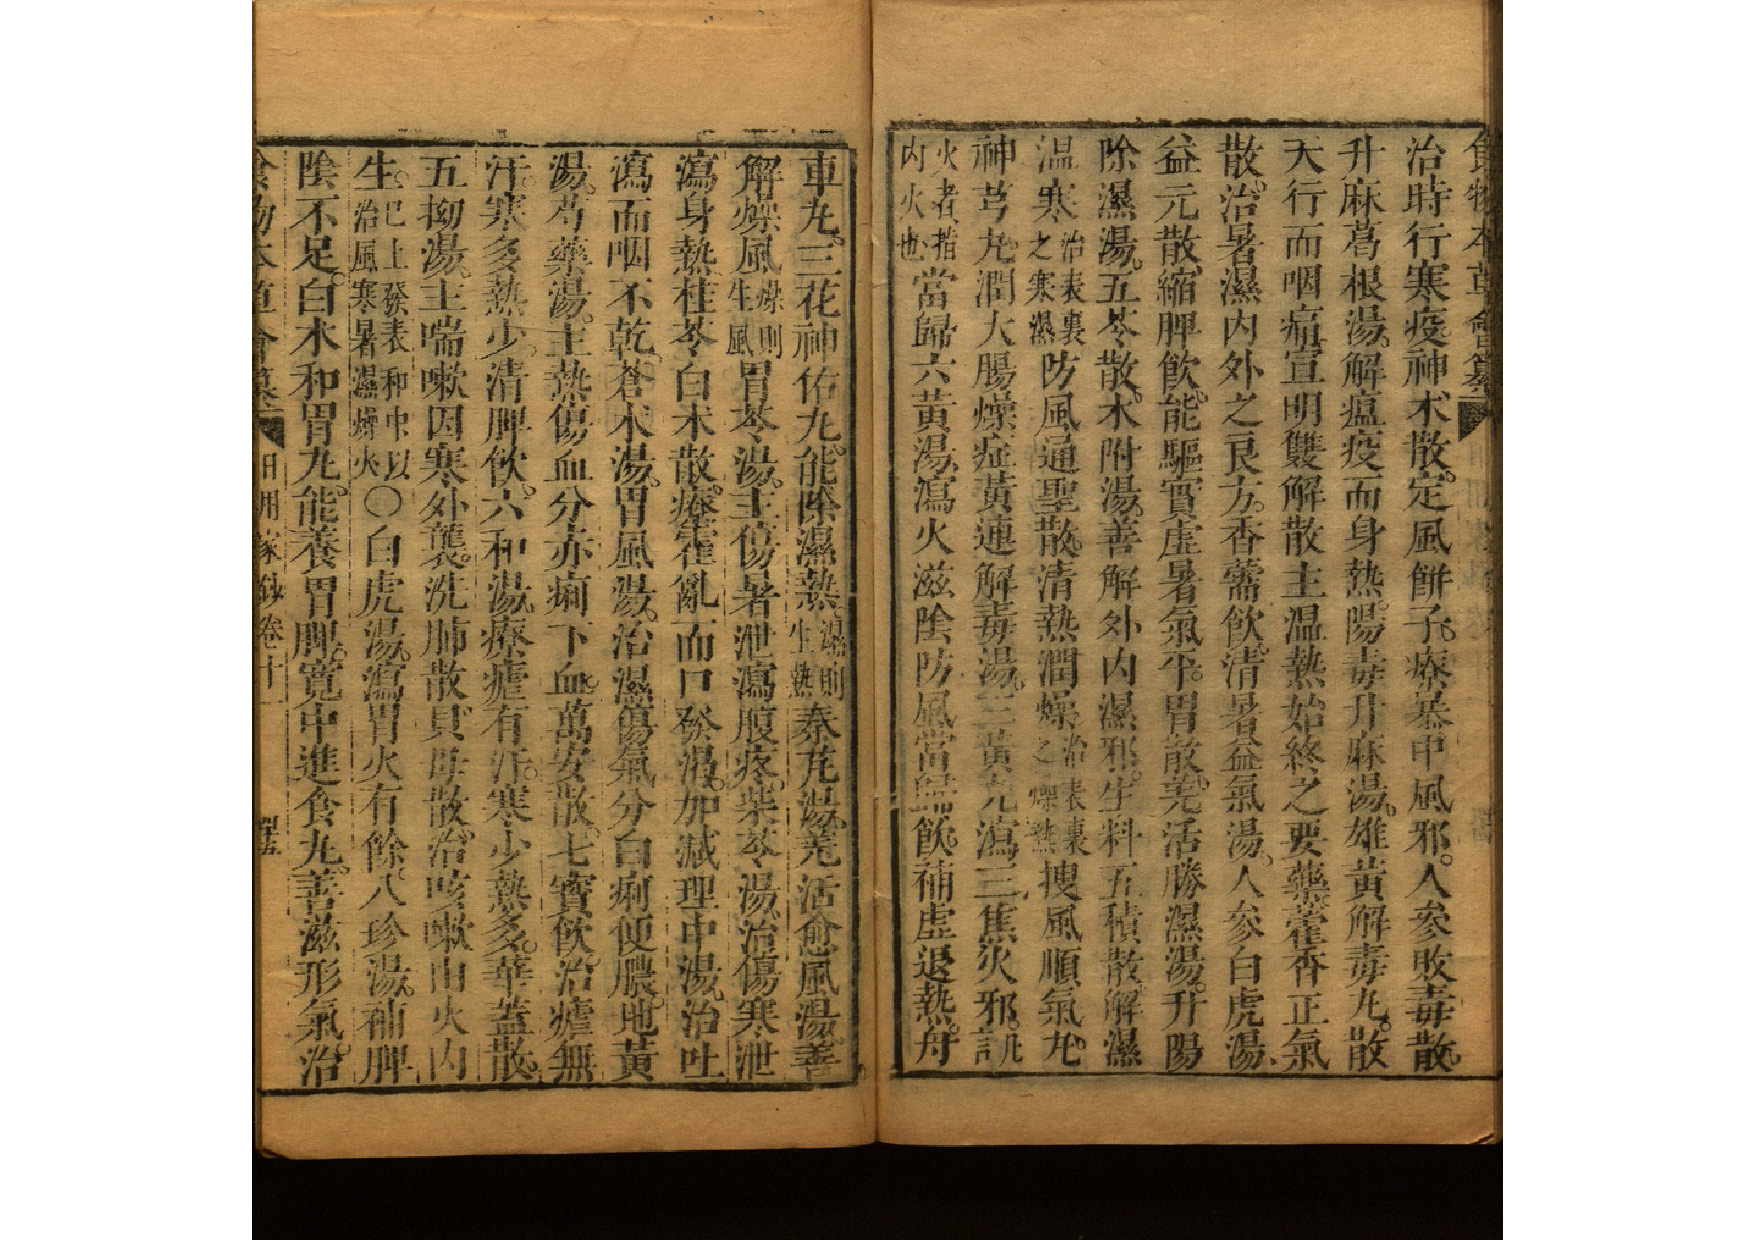 食物本草會纂
治時行寒疫神朮散。定風餅子。療暴中風邪。人參敗毒散。
升麻葛根湯。解瘟疫而身熱。陽毒升麻湯。雄黃解毒丸。散
天行而咽痛。宣明雙解散主温熱始終之要藥。藿香正氣
散。治暑濕內外之良方。香薷飲。清暑益氣湯。人參白虎湯。
益元散縮脾飲。能驅實虛暑氣平。胃散。羌活勝濕湯。升陽
除濕湯。五苓散。朮附湯。善解外內濕邪。生料五積散。解濕
温寒治表裏之寒濕防風通聖散。清熱潤燥治表裏之燥熱搜風順氣丸。
神芎丸。潤大腸燥症。黃連解毒湯。三黃丸瀉三焦火邪。訛
火者指內火也當歸六黃湯。瀉火滋陰防風當歸飲。補虛退熱。舟
車丸。三花神佑丸。能除濕熱。濕則生熱秦艽湯。羌活愈風湯。善
解燥風燥則生風胃苓湯。主傷暑泄瀉腹疼。柴苓湯。治傷寒泄
瀉身熱。桂苓白朮散。療霍亂而口發渴。加減理中湯。治吐
瀉而咽不乾。蒼朮湯。胃風湯。治濕傷氣分白痢便膿。地黃
湯。芍藥湯。主熱傷血分赤痢下血。萬安散。七寶飲。治瘧無
汗。寒多熱少。清脾飲。六和湯。療瘧有汗。寒少熱多。華蓋散。
五拗湯。主喘嗽因寒外襲。洗肺散。貝母散。治咳嗽由火內
生。巳上發表和中以治風寒暑濕燥火〇白虎湯。瀉胃火有餘。八珍湯。補脾
陰不足。白朮和胃丸。能養胃脾。寬中進食丸。善滋形氣。治
食物本草會纂 日用家鈔卷十一